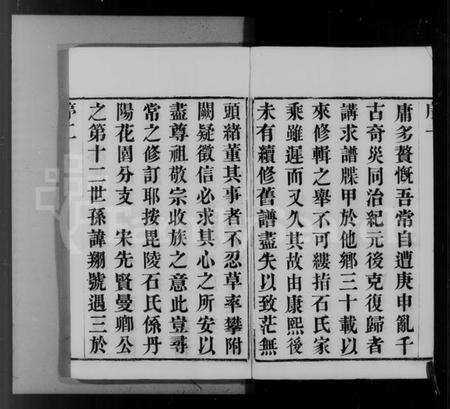 序一
庸多贅慨吾常自遭庚申亂千
古奇災同治紀元後克復歸者
講求譜牒甲於他鄉三十載以
來修輯之舉不可縷指石氏家
乘雖遲而又久其故由康熙後
未有續修舊譜盡失以致茫無
頭緒董其事者不忍草率攀附
闕疑徵信必求其心之所安以
盡尊祖敬宗收族之意此豈尋
常之修訂耶按毘陵石氏係丹
陽花園分支 宋先賢曼卿公
之第十二世孫諱翔號遇三於
序二